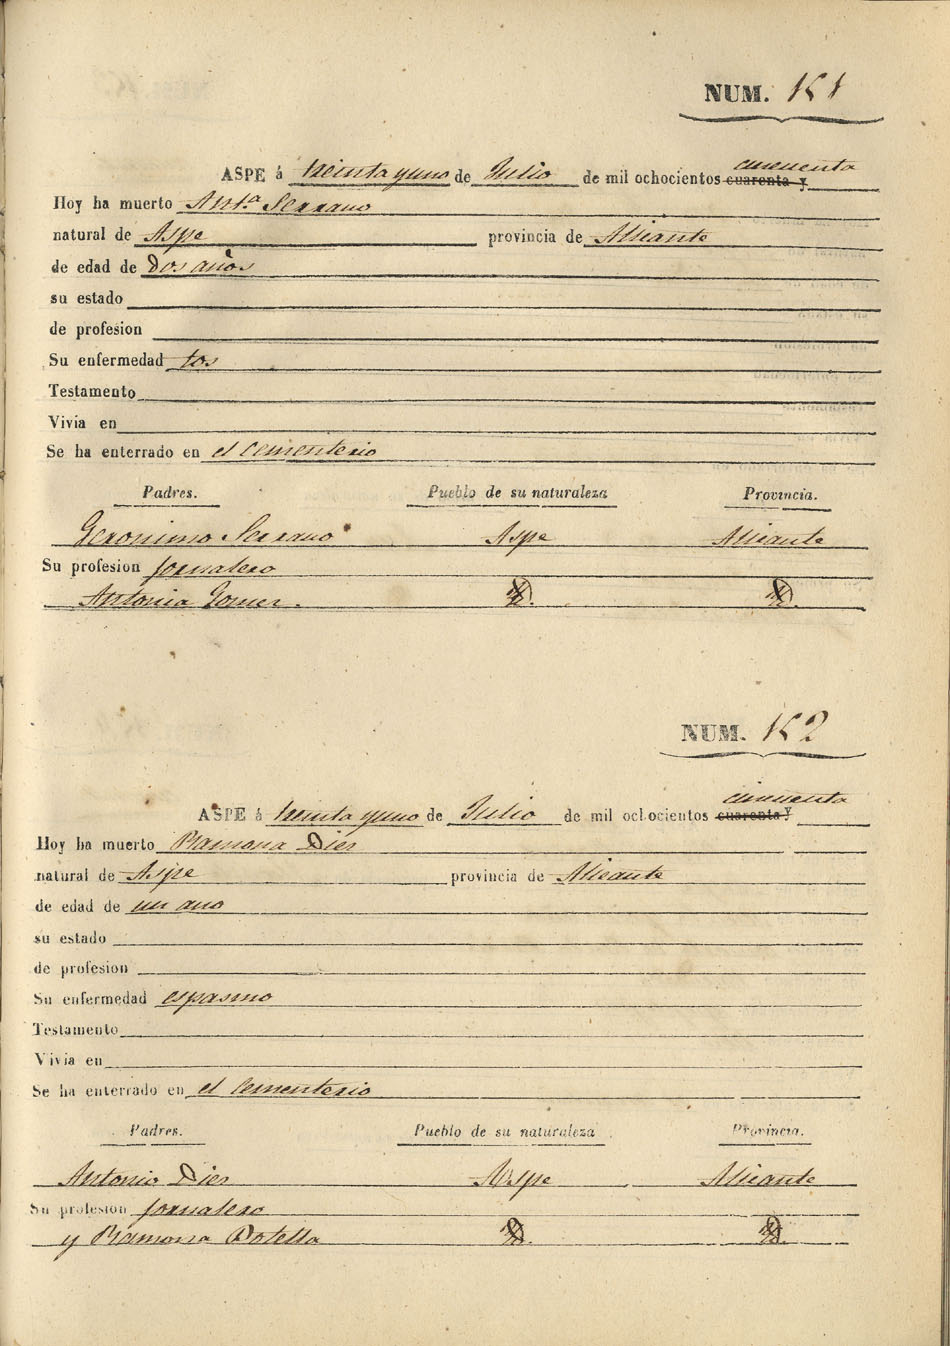 NUM. 151
cincuenta
ASPE á treinta y uno de Julio de mil ochocientos cuarenta y
Hoy ha muerto Ant.ª Serrano
natural de Aspe provincia de Alicante
de edad de dos años
su estado
de profesion
Su enfermedad tos
Testamento
Vivia en
Se ha enterrado en el Cementerio
Padres. Pueblo de su naturaleza Provincia.
Geronimo Serrano Aspe Alicante
Su profesion jornalero
Antonia Gomer.
NUM. 152
cincuenta
ASPE á treinta y uno de Julio de mil ochocientos cuarenta y
Hoy ha muerto Ramona Dies
natural de Aspe provincia de Alicante
de edad de un ano
su estado
de profesion
Su enfermedad espasmo
Testamento
Vivia en
Se ha enterrado en el Cementerio
Padres. Pueblo de su naturaleza Provincia.
Antonio Dies Aspe Alicante
Su profesion jornalero
y Ramona Botella